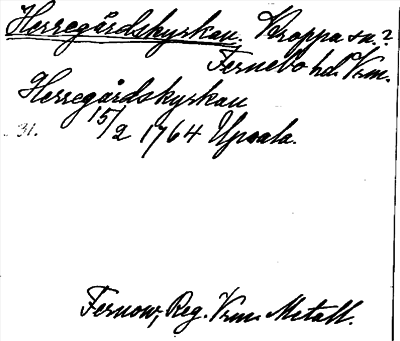 Herregårdskyrkan. Kroppa sn.?
Fernebo hd. Vrm.
Herregårdskyrkan
31. 15/2 1764 Upsala.
Fernow, Reg. Vrm. Metall.